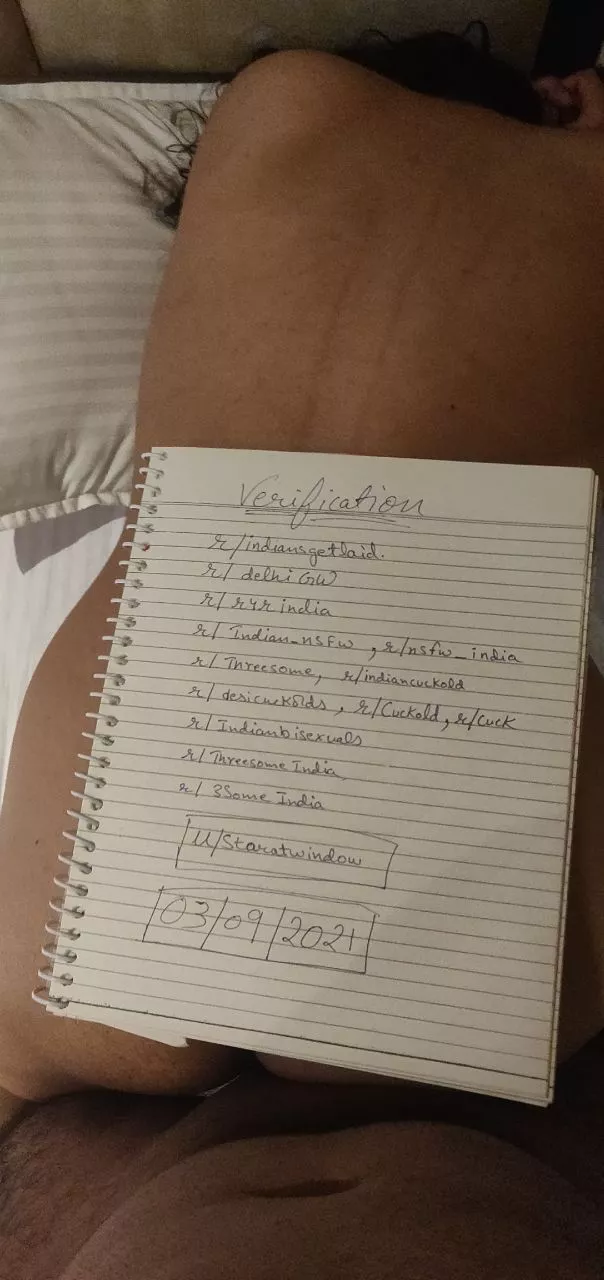 Verification
r/indiansgetlaid.
r/ delhi GW
r/ r4r india
r/ Indian_nsfw , r/nsfw_india
r/ Threesome, r/indiancuckold
r/ desicuckolds , r/Cuckold, r/cuck
r/ Indianbisexuals
r/ Threesome India
r/ 3Some India
u/Staratwindow
03/09/2021